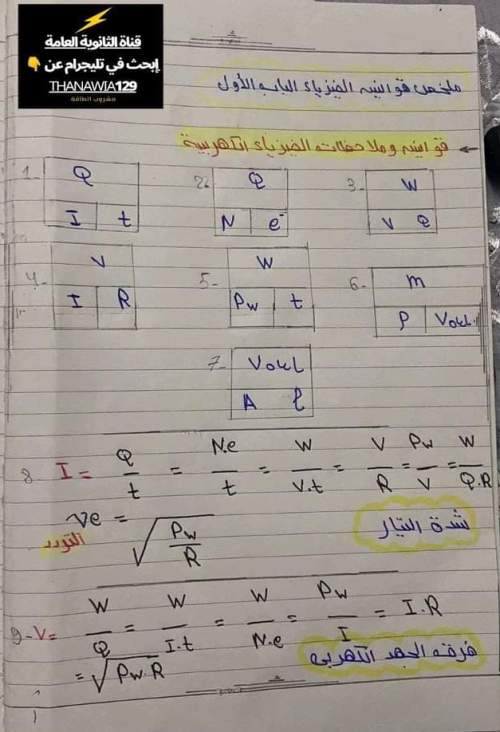 قناة الثانوية العامة
إبحث في تليجرام عن 👇
THANAWIA129
مشروب الطاقة
ملخص قوانين الفيزياء الباب الأول
← قوانين وملاحظات الفيزياء الكهربية
1- Q
I t
2- Q
N e⁻
3- W
V Q
4- V
I R
5- W
Pw t
6- m
ρ Vol.
7- Vol
A ℓ
8 I = Q/t = N.e/t = W/V.t = V/R = Pw/V = W/Q.R
νe = √(Pw/R)
شدة التيار
التردد
9- V = W/Q = W/I.t = W/N.e = Pw/I = I.R
= √(Pw.R)
فرق الجهد الكهربى